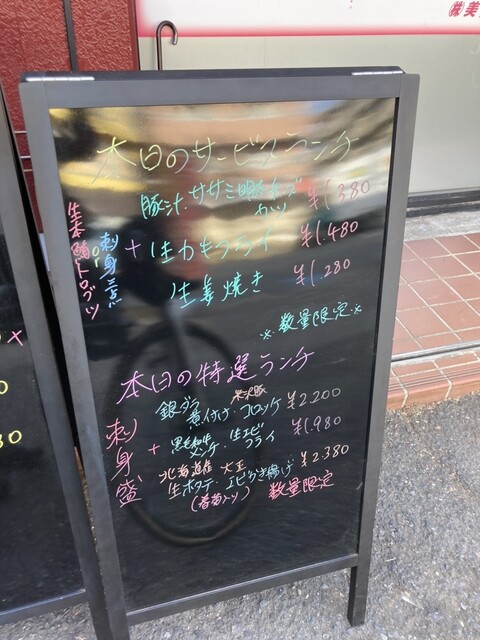 ㈱美
本日のサービスランチ
豚ヒレ、ササミ明太チーズカツ ¥1,380
生本鮪トロブツ 刺身三点 + 生カキフライ ¥1.480
生姜焼き ¥1.280
※数量限定※
本日の特選ランチ
刺身盛 +
銀ダラ 煮付け・米沢豚 コロッケ ¥2.200
黒毛和牛 メンチ・生エビ フライ ¥1.980
北海道産 大玉 生ホタテ・エビかき揚げ ¥2.380
(春菊入り) 数量限定